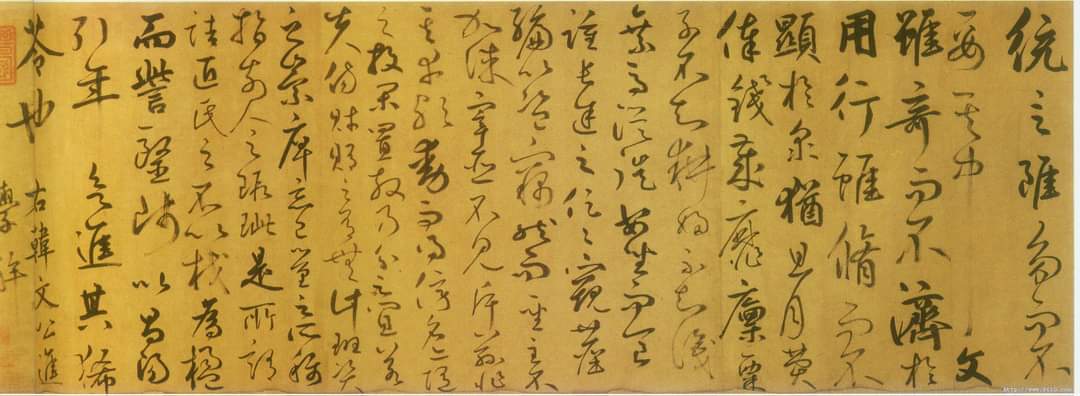 統言雖多而不
要其中 文
雖奇而不濟於
用行雖脩而不
顯於衆猶且月費
俸錢歲靡廩粟
子不知耕婦不知織
乘馬從徒安坐而食
踵長途之促々窺陳
編以盜竊然而聖主不
加誅宰臣不見斥茲非
其幸歟動而得謗名亦隨
之投閑置散乃分之宜若
夫商財賄之有無計班資
之崇庳忘己量之所稱
指前人之瑕疵是所謂
詰匠氏之不以杙為楹
而訾醫師以昌陽
引年欲進其豨
苓也
右韓文公進
學解